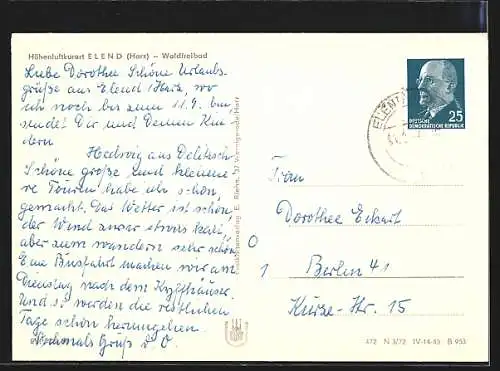 Höhenluftkurort ELEND (Harz) – Waldfreibad
Liebe Dorothee Schöne Urlaubs-
grüße aus Elend/Harz, wo
ich noch bis zum 11.9. bin
sendet Dir und Deinen Kin
dern
Hedwig aus Delitzsch
Schöne große und kleine
re Touren habe ich schon
gemacht. Das Wetter ist schön,
der Wind zwar etwas kalt,
aber zum wandern sehr schön.
Eine Busfahrt machen wir am
Dienstag nach dem Kyffhäuser.
Und so werden die restlichen
Tage schon herumgehen.
Nochmals Gruß d. O.
ELEND
25
DEUTSCHE
DEMOKRATISCHE REPUBLIK
Frau
Dorothee Eckart
1 Berlin 41
Kurze-Str. 15
E. Riehn, 37 Wernigerode/Harz
472 N 3/72 IV-14-45 B 953